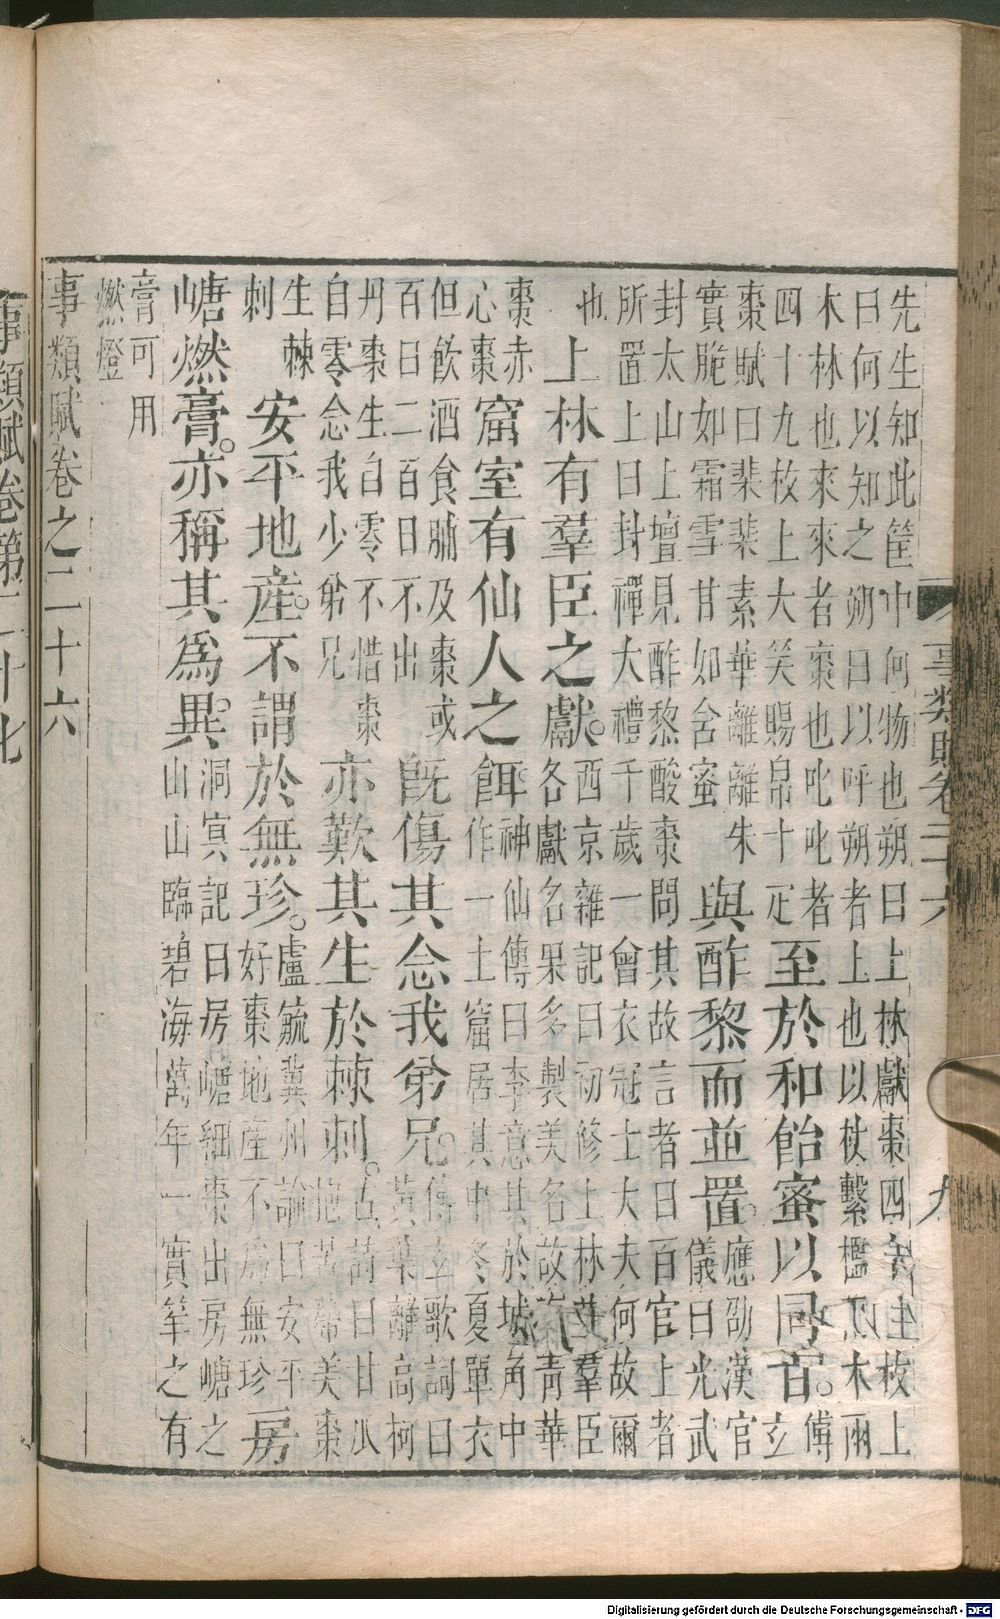 事類賦卷二十六 九
先生知此筐中何物也朔曰上林獻棗四枚上
曰何以知之朔曰以呼朔者上也以杖繫檻木兩
木林也來來者棗也叱叱者
四十九枚上大笑賜帛十疋
至於和飴蜜以同。
傅
玄
棗賦曰棐棐素華離離朱
實脆如霜雪甘如含蜜
與酢黎而並置。
應劭漢官
儀曰光武
封太山上壇見酢黎酸棗問其故言者曰百官上者
所置上曰封禪大禮千歲一會衣冠士大夫何故爾
也
上林有羣臣之獻。
西京雜記曰初修上林苑羣臣
各獻名果多製美名故靑華
棗赤
心棗
窟室有仙人之餌。
神仙傳曰李意其於城角中
作一土窟居其中冬夏單衣
但飲酒食脯及棗或
百日二百日不出
旣傷其念我弟兄。
傅玄歌詞曰
黃葉離高柯
丹棗生自零不惜棗
自零念我少弟兄
亦歎其生於棘刺。
古詩曰甘瓜
抱苦蒂美棗
生棘
刺
安平地產。不謂於無珍。
盧毓冀州論曰安平
好棗地產不爲無珍
房
嵣燃膏。亦稱其爲異。
洞冥記曰房嵣細棗出房嵣之
山山臨碧海萬年一實筆之有
膏可用
燃燈
事類賦卷之二十六
事類賦卷第二十七
Digitalisierung gefördert durch die Deutsche Forschungsgemeinschaft - DFG